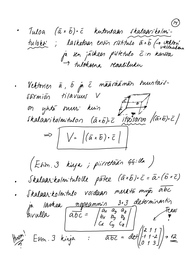 • Tuloa (ā×b̄)·c̄ kutsutaan skalaarikolmi-
tuloksi ; lasketaan ensin ristitulo ā×b̄
ja sen jälkeen pistetulo c̄:n kanssa
→ tuloksena reaaliluku
• Vektorien ā, b̄ ja c̄ määräämän suuntais-
särmiön tilavuus V
on yhtä suuri kuin
skalaarikolmitulon (ā×b̄)·c̄ itseisarvo |(ā×b̄)·c̄|
⇒ V = |(ā×b̄)·c̄|
(Esim. 3 kirja ; piirretään !)
• Skalaarikolmitulolle pätee (ā×b̄)·c̄ = ā·(b̄×c̄)
• Skalaarikolmitulo voidaan merkitä myös āb̄c̄
ja laskea 3×3 determinantin
avulla
āb̄c̄ =
Esim. 3 kirja : āb̄c̄ = det = 12